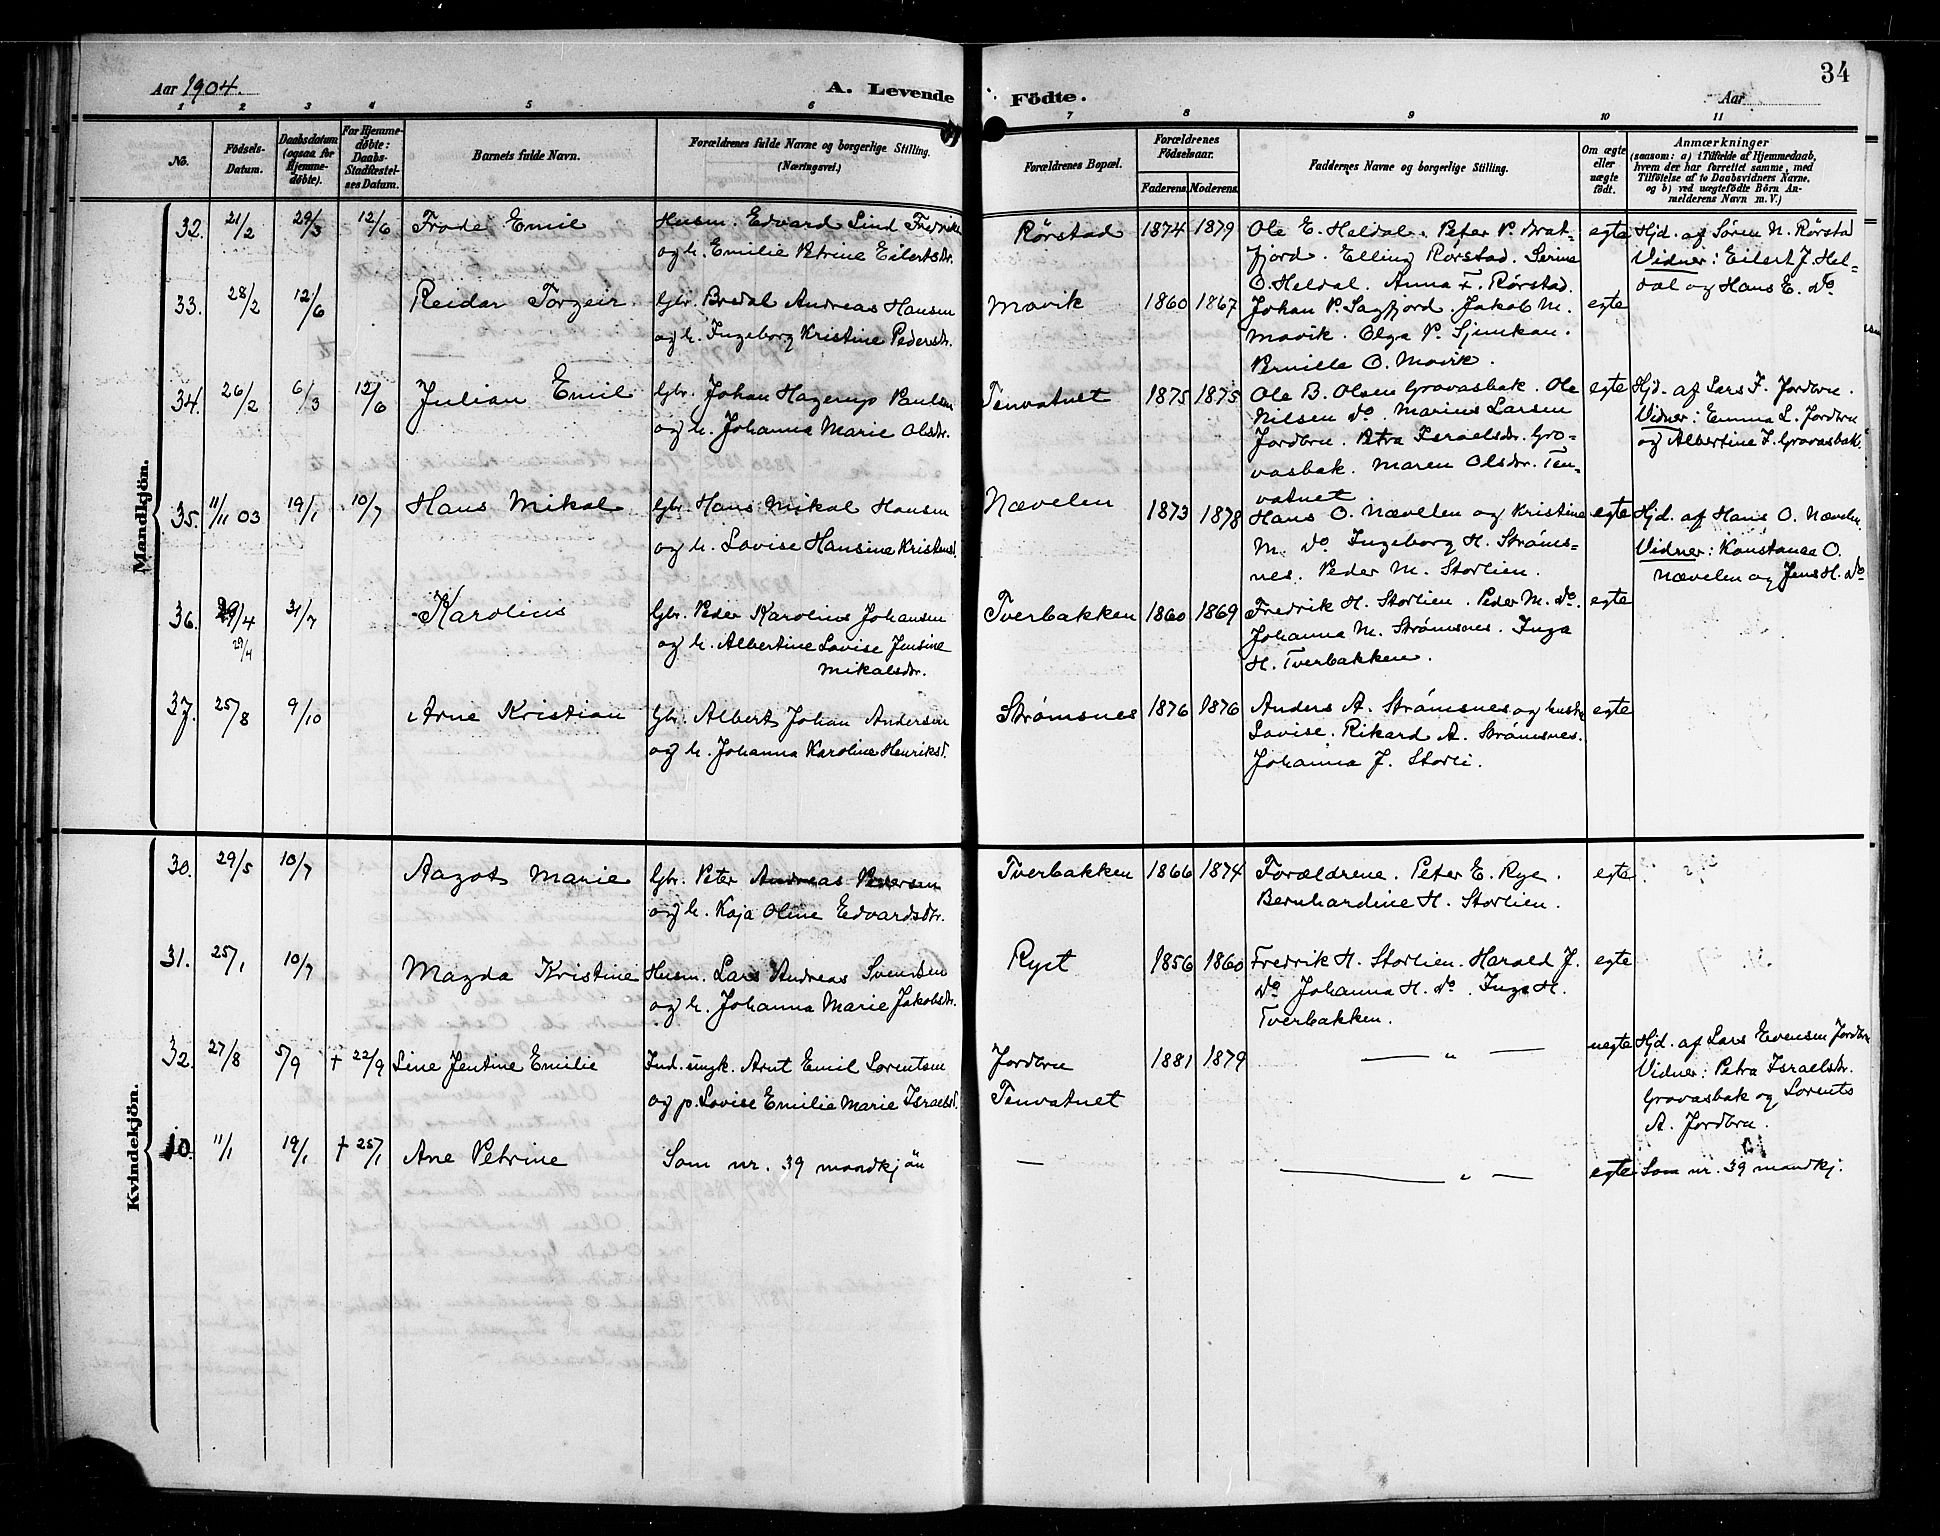 Aar 1904.
A. Levende Födte.
Aar
34
1 2 3 4 5 6 7 8 9 10 11
No.
Födsels-Datum.
Daabsdatum (ogsaa for Hjemme-döbte).
For Hjemme-döbte: Daabs-Stadfæstel-ses Datum.
Barnets fulde Navn.
Forældrenes fulde Navne og borgerlige Stilling. (Næringsvei.)
Forældrenes Bopæl.
Forældrenes Födselsaar.
Faderens. Moderens.
Faddernes Navne og borgerlige Stilling.
Om ægte eller uægte födt.
Anmærkninger
(saasom: a) i Tilfælde af Hjemmedaab, hvem der har forrettet samme, med Tilföielse af to Daabsvidners Navne. og b) ved uægtefödte Börn An-melderens Navn m. V.)
Mandkjön.
32. 21/2 29/3 12/6 Frode Emil
Husm. Edvard Lind Fredriks
og h. Emilie Petrine Eilertsdr.
Rørstad 1874 1879
Ole E. Heldal. Peter P. Brat-
fjord. Elling Rørstad. Serina
O. Heldal. Anna F. Rørstad.
egte
Hjd. af Søren N. Rørstad
Vidner: Eilert J. Hel-
dal og Hans E. do
33. 28/2 12/6 Reidar Torgeir.
Gbr. Bredal Andreas Hansen
og h. Ingeborg Kristine Pedersdr.
Movik 1860 1867
Johan P. Sagfjord. Jakob M.
Movik. Olga P. Sjunkan.
Pernille O. Movik.
egte
34. 26/2 6/3 12/6 Julian Emil
Gbr. Johan Hagerup Paulsen
og h. Johanna Marie Olsdr.
Tenvatnet 1875 1875
Ole B. Olsen Gravasbak. Ole
Nilsen do. Marius Larsen
Jordbru. Petra Israelsdr. Gra-
vasbak. Maren Olsdr. Ten-
vatnet
egte
Hjd. af Lars F. Jordbru.
Vidner: Emma L. Jordbru
og Albertine I. Gravasbak.
35. 11/11 03 19/1 10/7 Hans Mikal
Gbr. Hans Mikal Hansen
og h. Lovise Hansine Kristensd.
Nævelen 1873 1878
Hans O. Nævelen og Kristine
M. do Ingeborg H. Strøms-
nes. Peder M. Storlien.
egte
Hjd. af Hans O. Nævelen.
Vidner: Konstanse O.
Nævelen og Jens H. do
36. 29/4 31/7 Karolius
29/4
Gbr. Peder Karolius Johansen
og h. Albertine Lovise Jensine
Mikalsdr.
Tverbakken 1860 1869
Fredrik H. Storlien. Peder M. do.
Johanna M. Strømsnes. Inga
H. Tverbakken.
egte
37. 25/8 9/10 Arne Kristian
Gbr. Albert Johan Andersen
og h. Johanna Karoline Henriksd.
Strømsnes 1876 1876
Anders A. Strømsnes og hustru
Lovise. Rikard A. Strømsnes.
Johanna J. Storli.
egte
Kvindekjön.
30. 29/5 10/7 Aagot Marie
Gbr. Peter Andreas Pedersen
og h. Kaja Oline Edvardsdr.
Tverbakken 1866 1874
Forældrene. Peter E. Rye.
Bernhardine H. Storlien.
egte
31. 25/1 10/7 Magda Kristine
Husm. Lars Andreas Svendsen
og h. Johanna Marie Jakobsdr.
Ryet 1856 1860
Fredrik H. Storlien. Harald J.
do Johanna H. do. Inga H.
Tverbakken.
egte
32. 27/8 5/9 † 22/9 Line Jentine Emilie
Ind. ungk. Arnt Emil Lorentsen
og p. Lovise Emilie Marie Israelsd.
Jordbru
Tenvatnet
1881 1879
— " —
uegte
Hjd. af Lars Evensen Jordbru
Vidner: Petra Israelsdr.
Gravasbak og Lorents
A. Jordbru.
10. 11/1 19/1 † 25/1 Ane Petrine
Som nr. 39 mandkjøn
—
— " —
egte
Som nr. 39 mandkj.